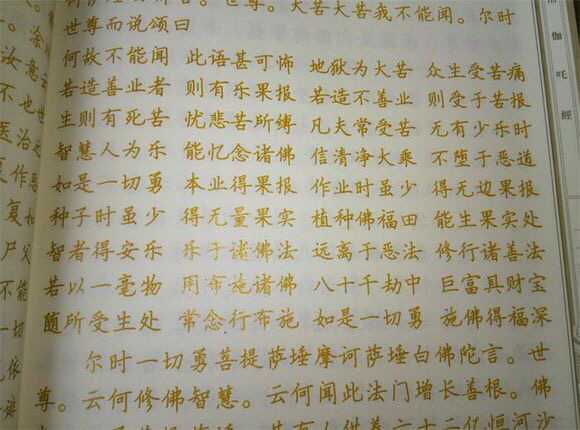 苦。世尊。大苦大苦我不能闻。尔时
世尊而说颂曰
何故不能闻 此语甚可怖 地狱为大苦 众生受苦痛
若造善业者 则有乐果报 若造不善业 则受于苦报
生则有死苦 忧悲苦所缚 凡夫常受苦 无有少乐时
智慧人为乐 能忆念诸佛 信清净大乘 不堕于恶道
如是一切勇 本业得果报 作业时虽少 得无边果报
种子时虽少 得无量果实 植种佛福田 能生果实处
智者得安乐 乐于诸佛法 远离于恶法 修行诸善法
若以一毫物 用布施诸佛 八十千劫中 巨富具财宝
随所受生处 常念行布施 如是一切勇 施佛得福深
尔时一切勇菩提萨埵摩诃萨埵白佛陀言。世
尊。云何修佛智慧。云何闻此法门增长善根。佛
伽吒經